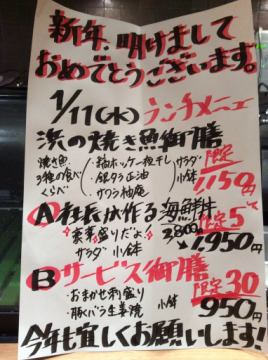 新年、明けまして
おめでとうございます。
1/11(水)ランチメニュー
浜の焼き魚御膳
焼き魚
3種の食べ
くらべ
・縞ホッケ一夜干し
・銀タラ正油
・サワラ柚庵
サラダ
小鉢
限定
1,150円
A 社長が作る海鮮丼
限定5
豪華盛りだよ!
サラダ 小鉢
2,800
1,950円
B サービス御膳
限定30
・おまかせ刺盛り
・豚バラ生姜焼
小鉢
950円
今年も宜しくお願いします!